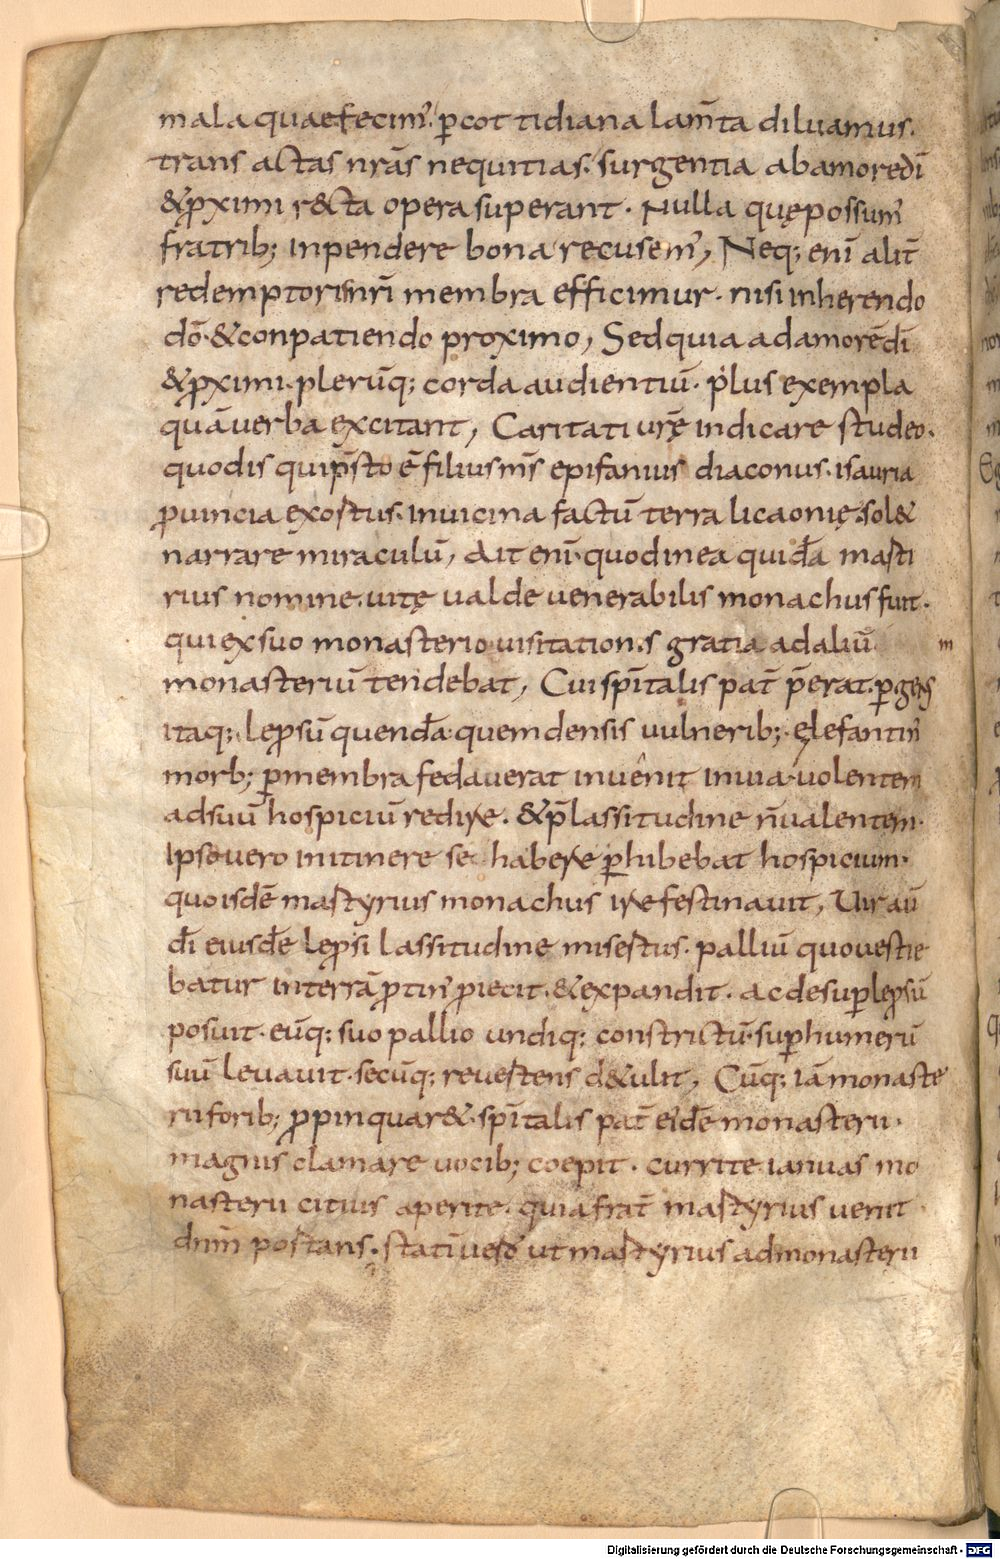 mala quae fecim᾽. p̱cottidiana lam̄ta diluamus.
trans actas nr̄as nequitias. surgentia abamoredī
&p̱ximi r&cta opera superant. Nulla quępossum᾽
fratrib; inpendere bona recusem᾽, Neq; enī alit̄
redemptorisnr̄i membra efficimur. nisi inherendo
dō.&conpatiendo proximo, Sedquia adamorēdī
&p̱ximi. plerūq; corda audientiū. plus exempla
quāuerba excitant, Caritati ur̄ę indicare studeo.
quodis quip̄sto ē filiusms̄ epifanius diaconus. isauria
p̱uincia exortus. inuicina factū terra licaonię. sol&
narrare miraculū, Ait enī. quodinea quidā marti
rius nomine. uitę ualde uenerabilis monachus fuit.
qui exsuo monasterio uisitationis gratia adaliū
m
monasteriū tendebat, Cui sp̄italis pat̄ p̄erat. p̱gens
itaq; lep̱sū quendā. quem densis uulnerib; elefantin᾽
morb; p̱membra fedauerat inuenit inuia. uolentem
adsuū hospiciū redire. &p̄lassitudine n̄ualentem.
Ipse uero initinere se habere p̱hibebat hospicium.
quo isdē martyrius monachus ire festinauit, Uir aū
dī eiusdē lep̱si lassitudine misertus. palliū quouestie
batur interrā p̱tin᾽ p̱iecit. &expandit. ac desup̱lep̱sū
posuit. eūq; suo pallio undiq; constrictū. sup̱humerū
suū leuauit. secūq; reuertens d&ulit, Cūq; iā monaste
rii forib; p̱pinquar&. sp̄italis pat̄ eidē monasterii.
magnis clamare uocib; coepit. currite. ianuas mo
nasterii citius aperite. quia frat̄ martyrius uenit
dn̄m portans. statī uero ut martyrius admonasterii
Digitalisierung gefördert durch die Deutsche Forschungsgemeinschaft - DFG